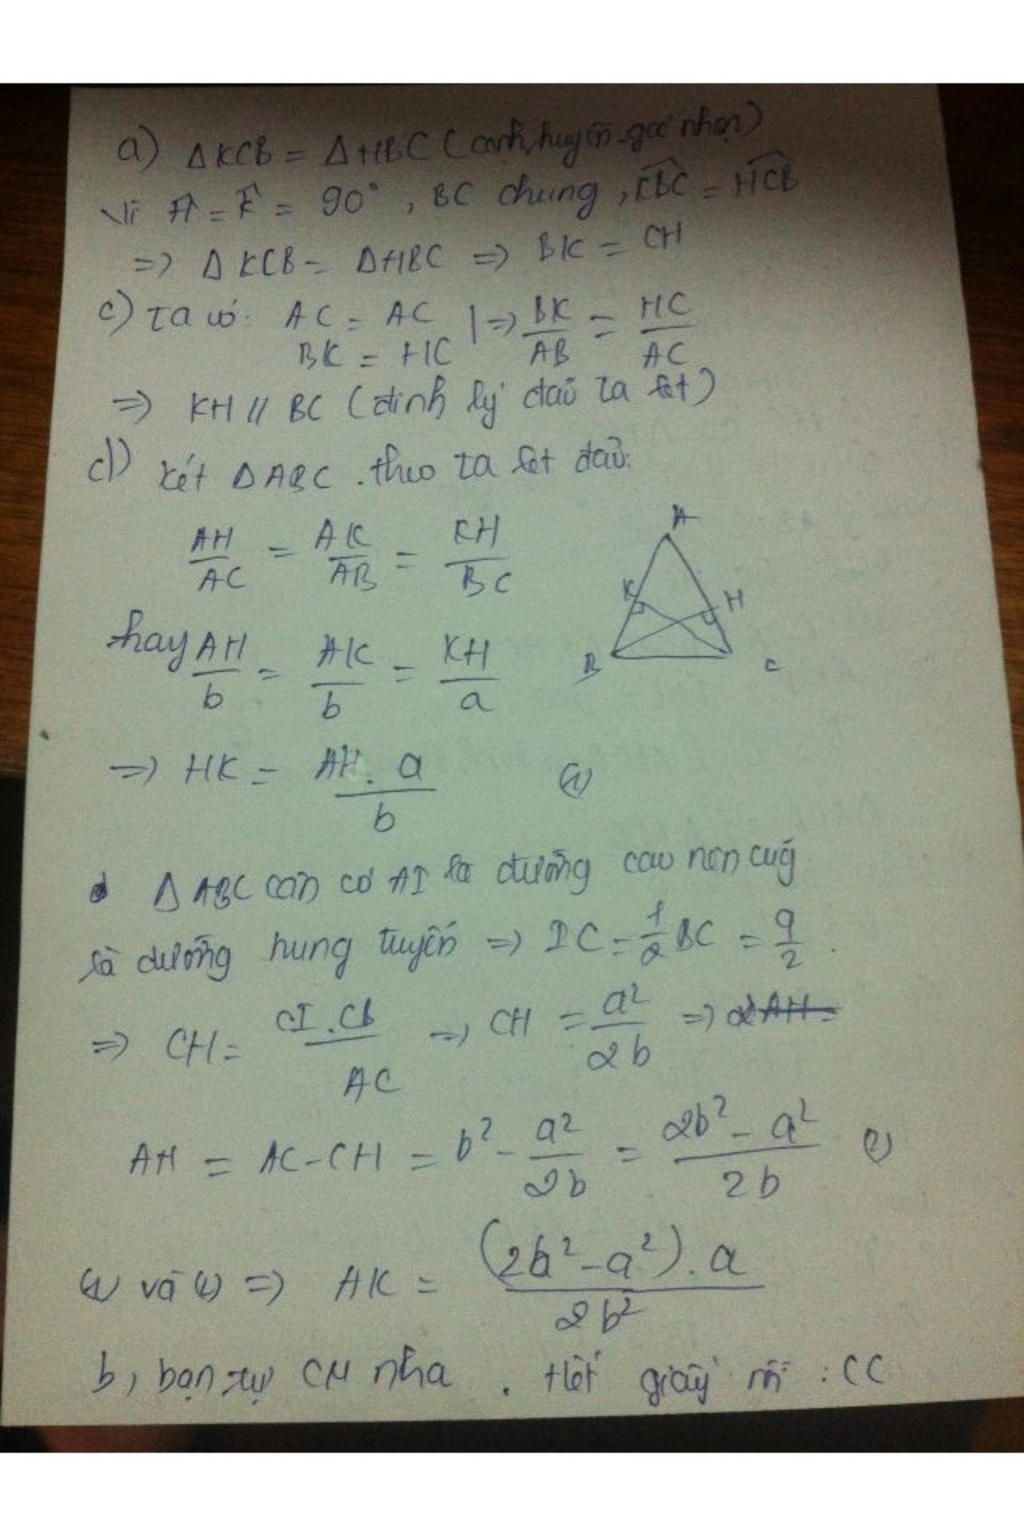 a) ΔKCB = ΔHBC (cạnh huyền - góc nhọn)
Vì Ĥ = K̂ = 90°, BC chung, K̂BC = ĤCB
=> ΔKCB = ΔHBC => BK = CH
c) Ta có: AC = AC | => BK/AB = HC/AC
BK = HC
=> KH // BC (định lý đảo Ta let)
d) Xét ΔABC. theo ta let đảo:
AH/AC = AK/AB = KH/BC
A
K H
B C
hay AH/b = AK/b = KH/a
=> HK = AH.a/b (1)
ΔABC cân có AI là đường cao nên cũg
là đường trung tuyến => IC = 1/2 BC = a/2.
=> CH = CI.CB/AC => CH = a²/2b =>
AH = AC - CH = b² - a²/2b = 2b² - a²/2b (2)
(1) và (2) => AK = (2b² - a²).a/2b²
b, bạn tự CM nha. Hết giấy rồi :CC